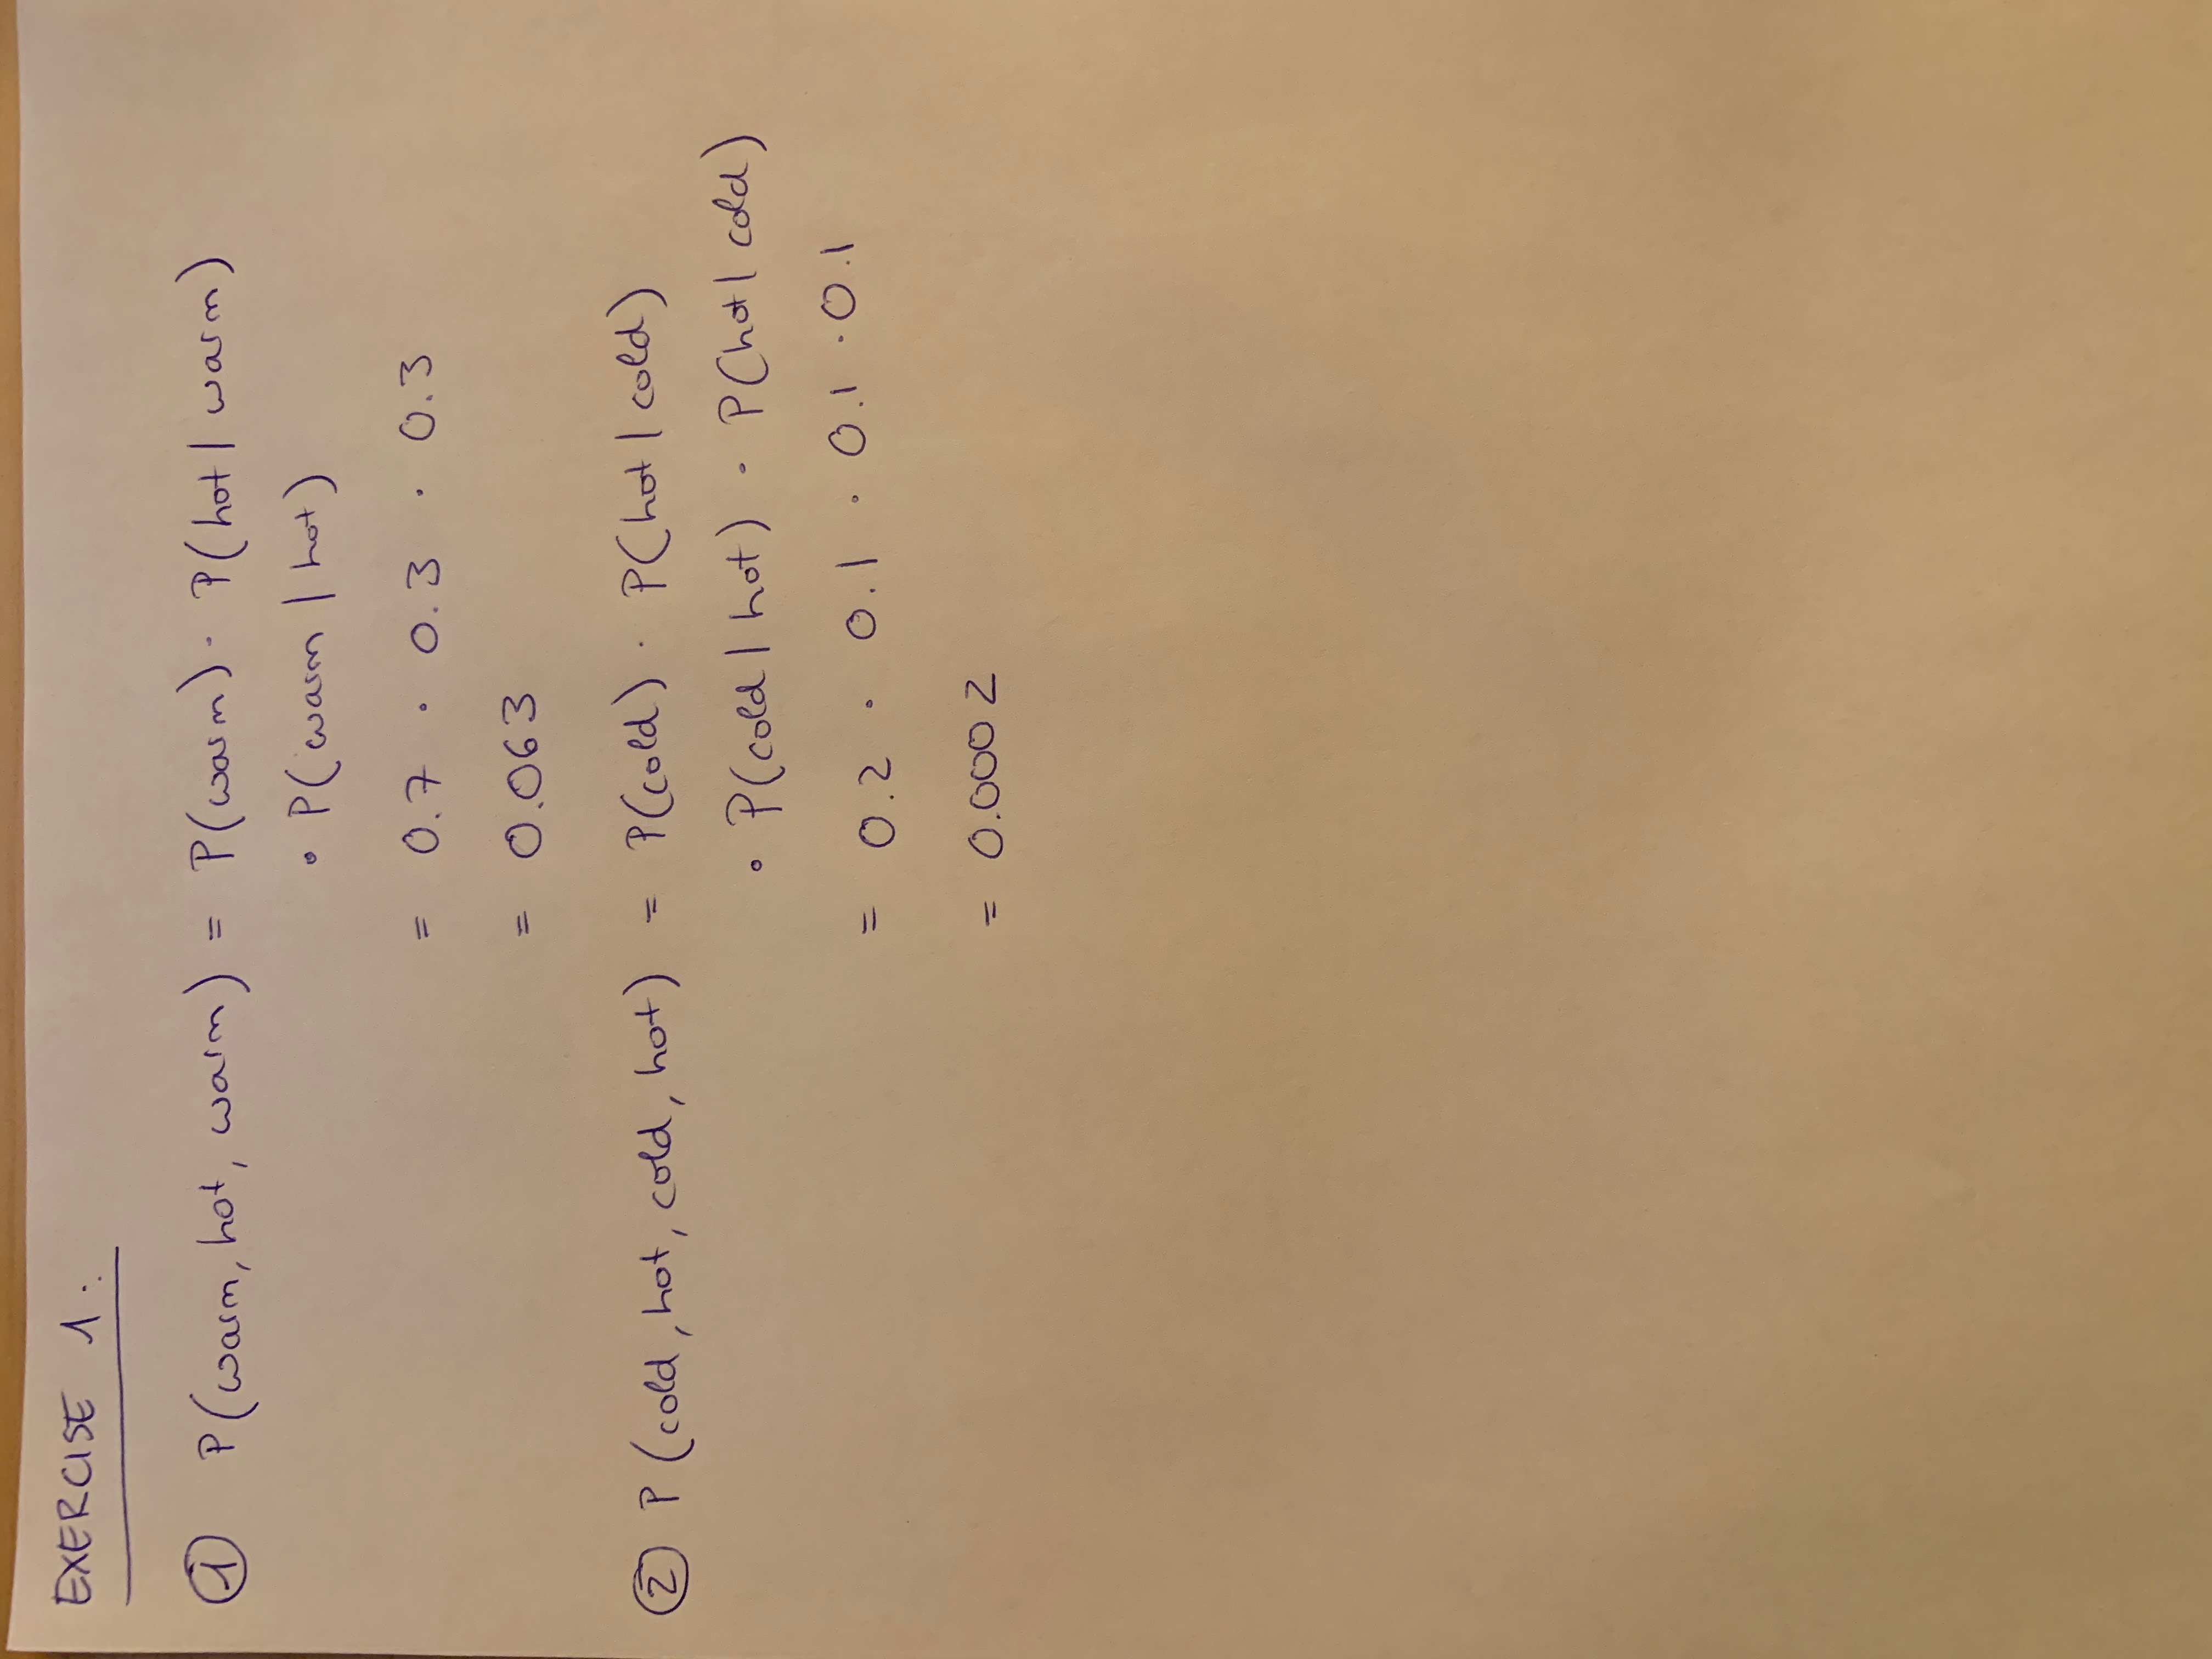 EXERCISE 1:
① P(warm, hot, warm) = P(warm) · P(hot | warm)
· P(warm | hot)
= 0.7 · 0.3 · 0.3
= 0.063
② P(cold, hot, cold, hot) = P(cold) · P(hot | cold)
· P(cold | hot) · P(hot | cold)
= 0.2 · 0.1 · 0.1 · 0.1
= 0.0002